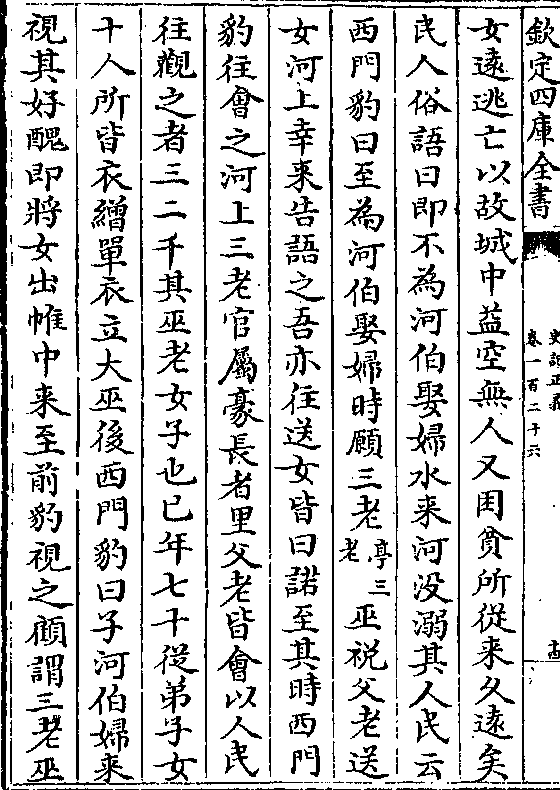 欽定四庫全書
史記正義
卷一百二十六
女逺逃亡以故城中益空無人又困貧所從来久逺矣
民人俗語曰即不為河伯娶婦水来河没溺其人民云
西門豹曰至為河伯娶婦時願三老亭三老巫祝父老送
女河上幸来告語之吾亦往送女皆曰諾至其時西門
豹往會之河上三老官屬豪長者里父老皆會以人民
往觀之者三二千其巫老女子也已年七十從弟子女
十人所皆衣繒單衣立大巫後西門豹曰子河伯婦来
視其好醜即將女出帷中来至前豹視之顧謂三老巫